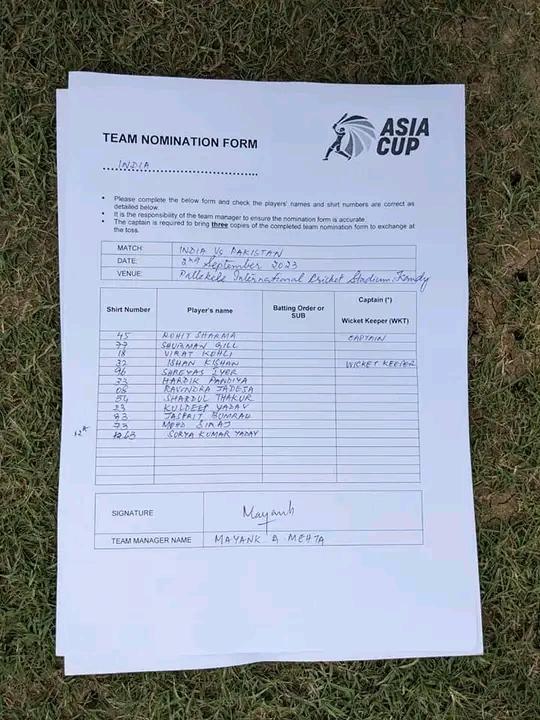 ASIA
CUP
TEAM NOMINATION FORM
INDIA
Please complete the below form and check the players' names and shirt numbers are correct as
detailed below.
It is the responsibility of the team manager to ensure the nomination form is accurate.
The captain is required to bring three copies of the completed team nomination form to exchange at
the toss.
MATCH: INDIA Vs PAKISTAN
DATE: 2nd September 2023
VENUE: Pallekele International Cricket Stadium, Kandy
Shirt Number Player's name Batting Order or SUB Captain (*) Wicket Keeper (WKT)
45 ROHIT SHARMA CAPTAIN
77 SHUBMAN GILL
18 VIRAT KOHLI
32 ISHAN KISHAN WICKET KEEPER
96 SHREYAS IYER
33 HARDIK PANDIYA
08 RAVINDRA JADEJA
54 SHARDUL THAKUR
23 KULDEEP YADAV
93 JASPRIT BUMRAH
73 MOHD SIRAJ
12th 63 SURYA KUMAR YADAV
SIGNATURE Mayank
TEAM MANAGER NAME MAYANK A MEHTA